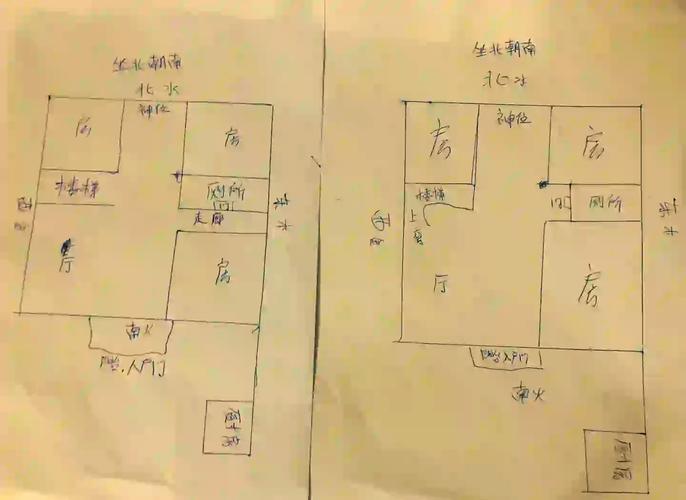 坐北朝南
北水
神位
房
房
楼梯
厕所
门
走廊
东木
厅
房
南火
入户门
厨房
坐北朝南
北水
神位
房
房
楼梯
上
门
厕所
东木
厅
房
入户门
南火
厨房